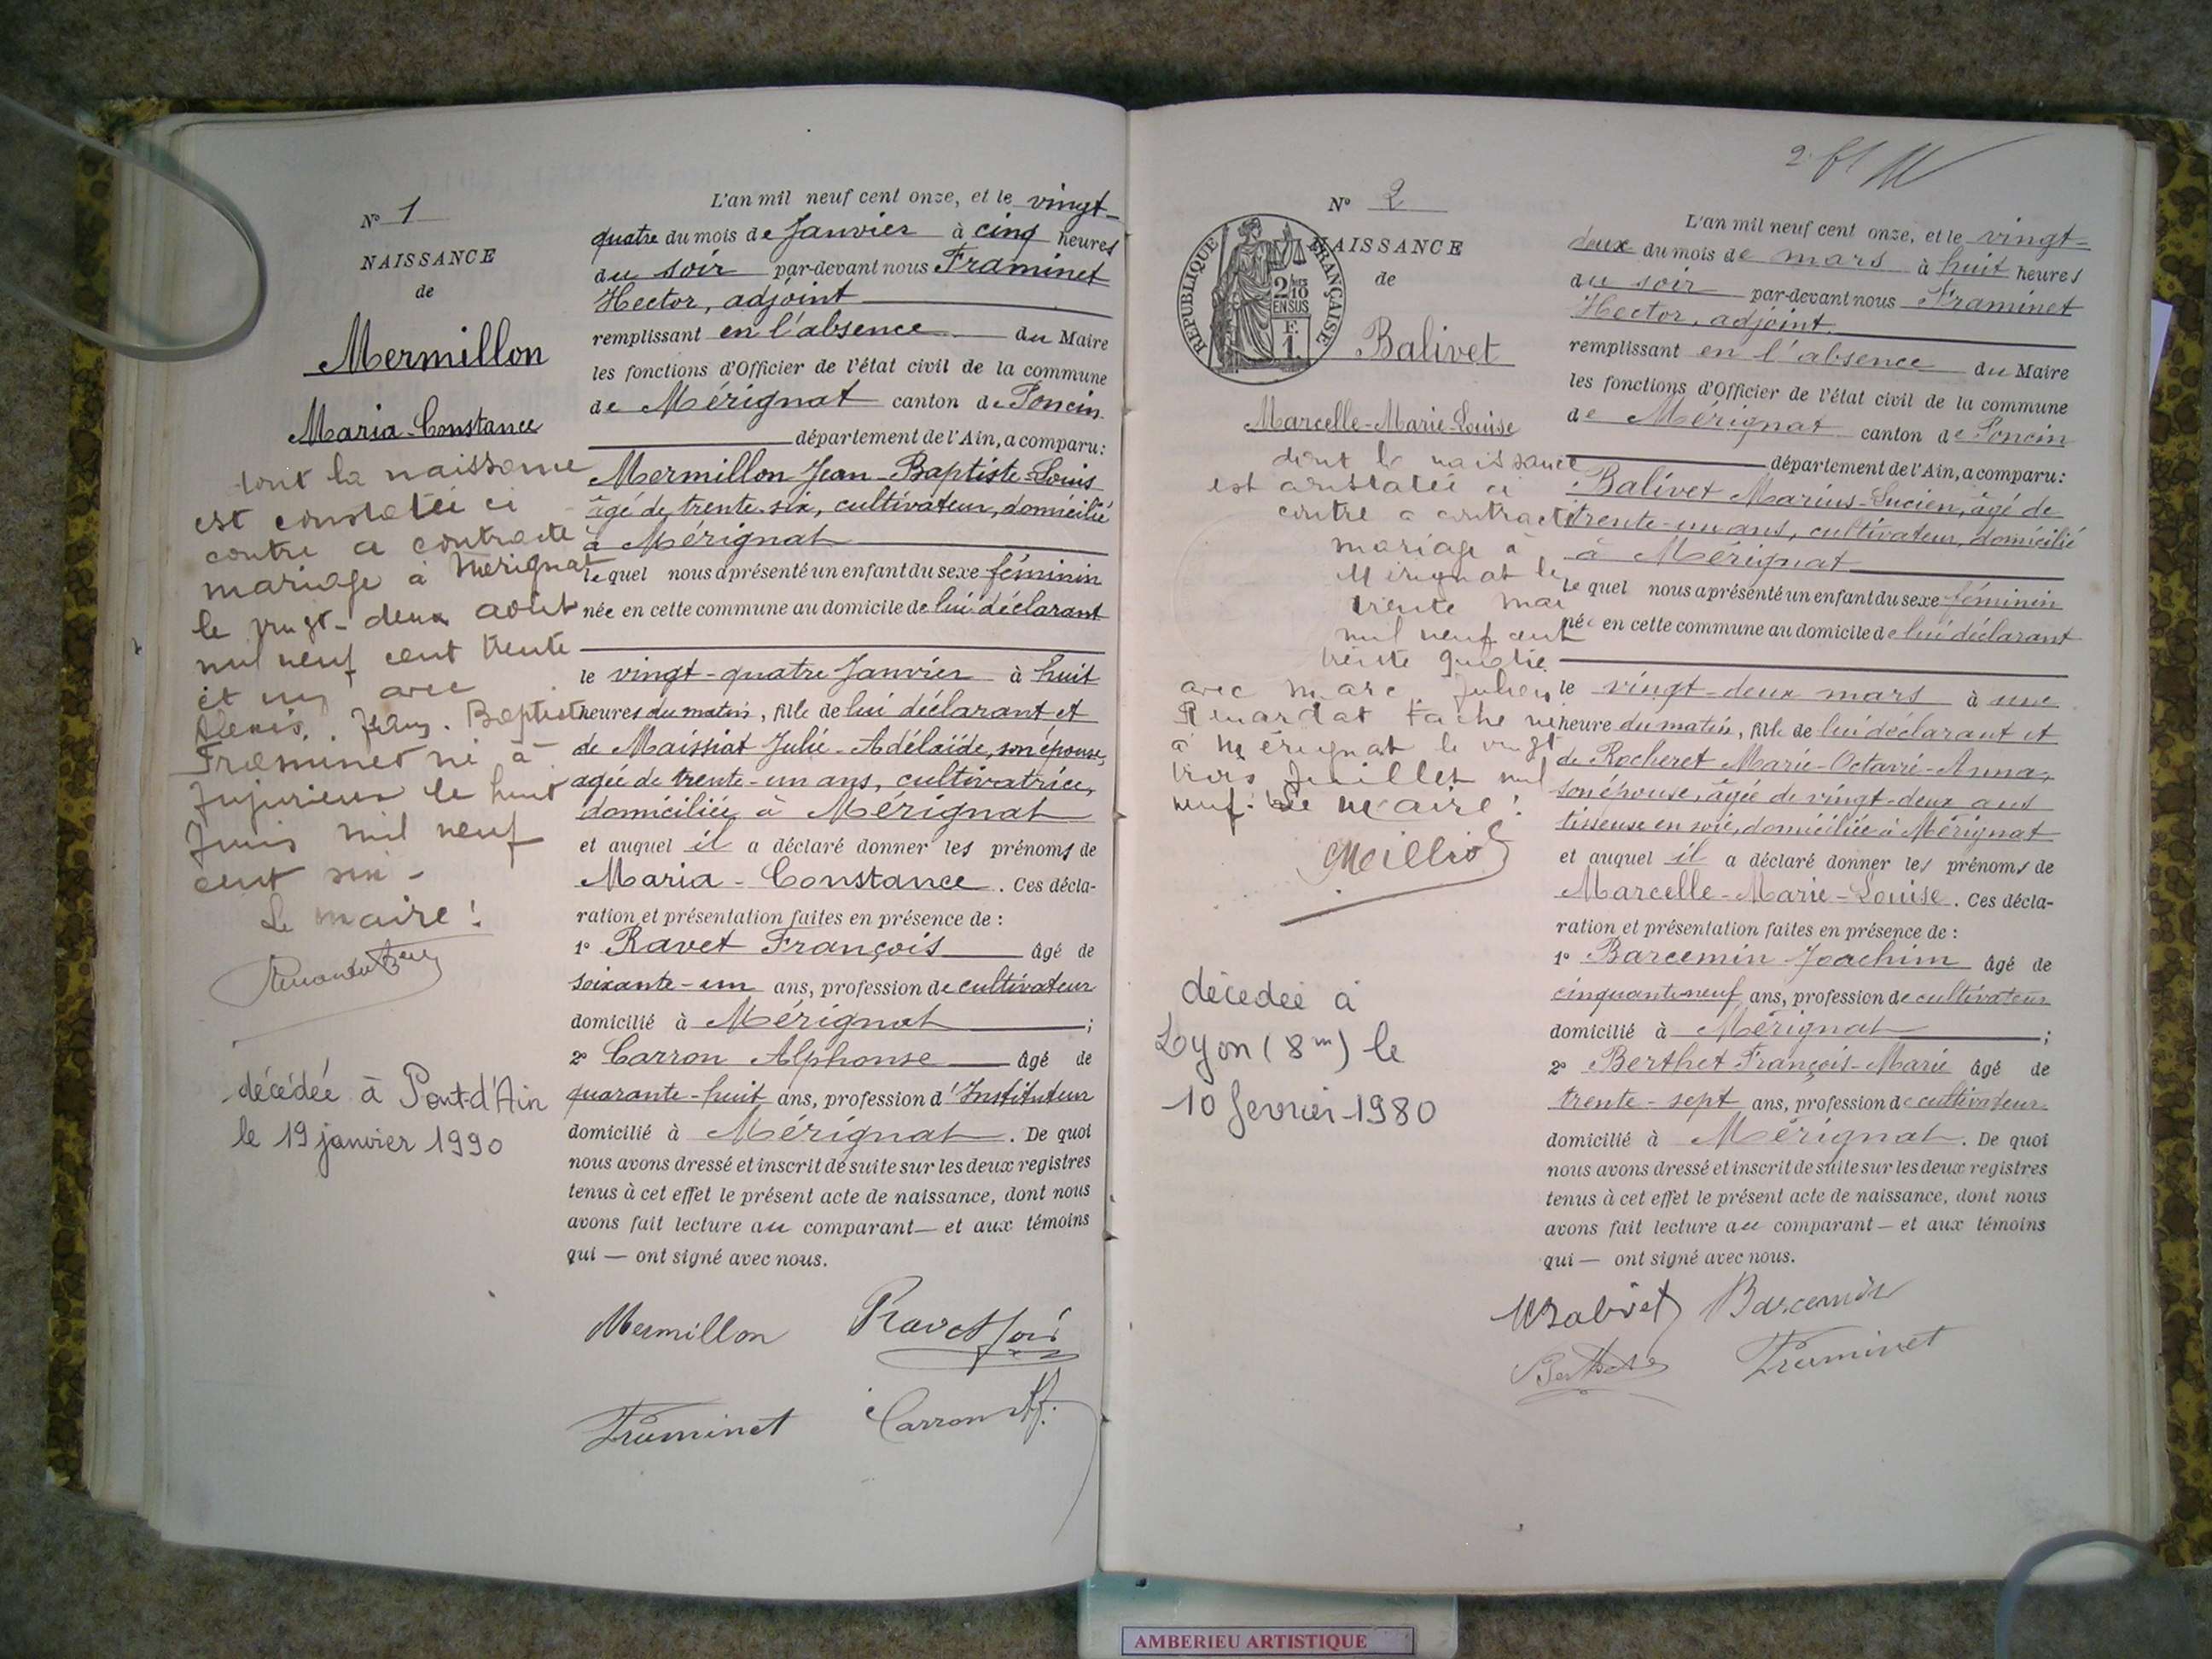 N° 1
NAISSANCE
de
Mermillon
Maria-Constance
dont la naissance
est constatée ci
contre a contracté
mariage à Mérignat
le vingt-deux août
mil neuf cent trente
et un avec
Alexis. Jean. Baptiste
Framinet né à
Jujurieux le huit
Juin mil neuf
cent six -
Le maire !
décédée à Pont-d'Ain
le 19 janvier 1990
L'an mil neuf cent onze, et le vingt-
quatre du mois de Janvier à cinq heures
du soir par-devant nous Framinet
Hector, adjoint
remplissant en l'absence du Maire
les fonctions d'Officier de l'état civil de la commune
de Mérignat canton de Poncin
département de l'Ain, a comparu:
Mermillon Jean-Baptiste-Louis
âgé de trente-six, cultivateur, domicilié
à Mérignat
lequel nous a présenté un enfant du sexe féminin
née en cette commune au domicile de lui déclarant
le vingt-quatre Janvier à huit
heures du matin, fille de lui déclarant et
de Maissiat Julie-Adélaïde, son épouse,
agée de trente-un ans, cultivatrice,
domiciliée à Mérignat
et auquel il a déclaré donner les prénoms de
Maria-Constance. Ces décla-
ration et présentation faites en présence de :
1° Ravet François âgé de
soixante-un ans, profession de cultivateur
domicilié à Mérignat ;
2° Carron Alphonse âgé de
quarante-huit ans, profession d'Instituteur
domicilié à Mérignat. De quoi
nous avons dressé et inscrit de suite sur les deux registres
tenus à cet effet le présent acte de naissance, dont nous
avons fait lecture au comparant — et aux témoins
qui — ont signé avec nous.
Mermillon Ravet
Framinet Carron Af.
N° 2
RÉPUBLIQUE FRANÇAISE
2/10
EN SUS
F.
1.
NAISSANCE
de
Balivet
Marcelle-Marie-Louise
dont la naissance
est constatée ci
contre a contracté
mariage à
Mérignat le
trente mai
mil neuf cent
trente quatre
avec Marc Julien
Renardat Fache né
à Mérignat le vingt
trois Juillet mil
neuf. Le maire !
décédée à
Lyon (8m) le
10 fevrier-1980
L'an mil neuf cent onze, et le vingt-
deux du mois de mars à huit heures
du soir par-devant nous Framinet
Hector, adjoint,
remplissant en l'absence du Maire
les fonctions d'Officier de l'état civil de la commune
de Mérignat canton de Poncin
département de l'Ain, a comparu:
Balivet Marius-Lucien, âgé de
trente-un ans, cultivateur, domicilié
à Mérignat
lequel nous a présenté un enfant du sexe féminin
née en cette commune au domicile de lui déclarant
le vingt-deux mars à une
heure du matin, fille de lui déclarant et
de Rocheret Marie-Octavie-Anna,
son épouse, âgée de vingt-deux ans
tisseuse en soie, domiciliée à Mérignat
et auquel il a déclaré donner les prénoms de
Marcelle-Marie-Louise. Ces décla-
ration et présentation faites en présence de :
1° Barcemin Joachim âgé de
cinquante-neuf ans, profession de cultivateur
domicilié à Mérignat ;
2° Berthet François-Marie âgé de
trente-sept ans, profession de cultivateur
domicilié à Mérignat. De quoi
nous avons dressé et inscrit de suite sur les deux registres
tenus à cet effet le présent acte de naissance, dont nous
avons fait lecture au comparant — et aux témoins
qui — ont signé avec nous.
Balivet Barcemin
Berthet Framinet
AMBERIEU ARTISTIQUE